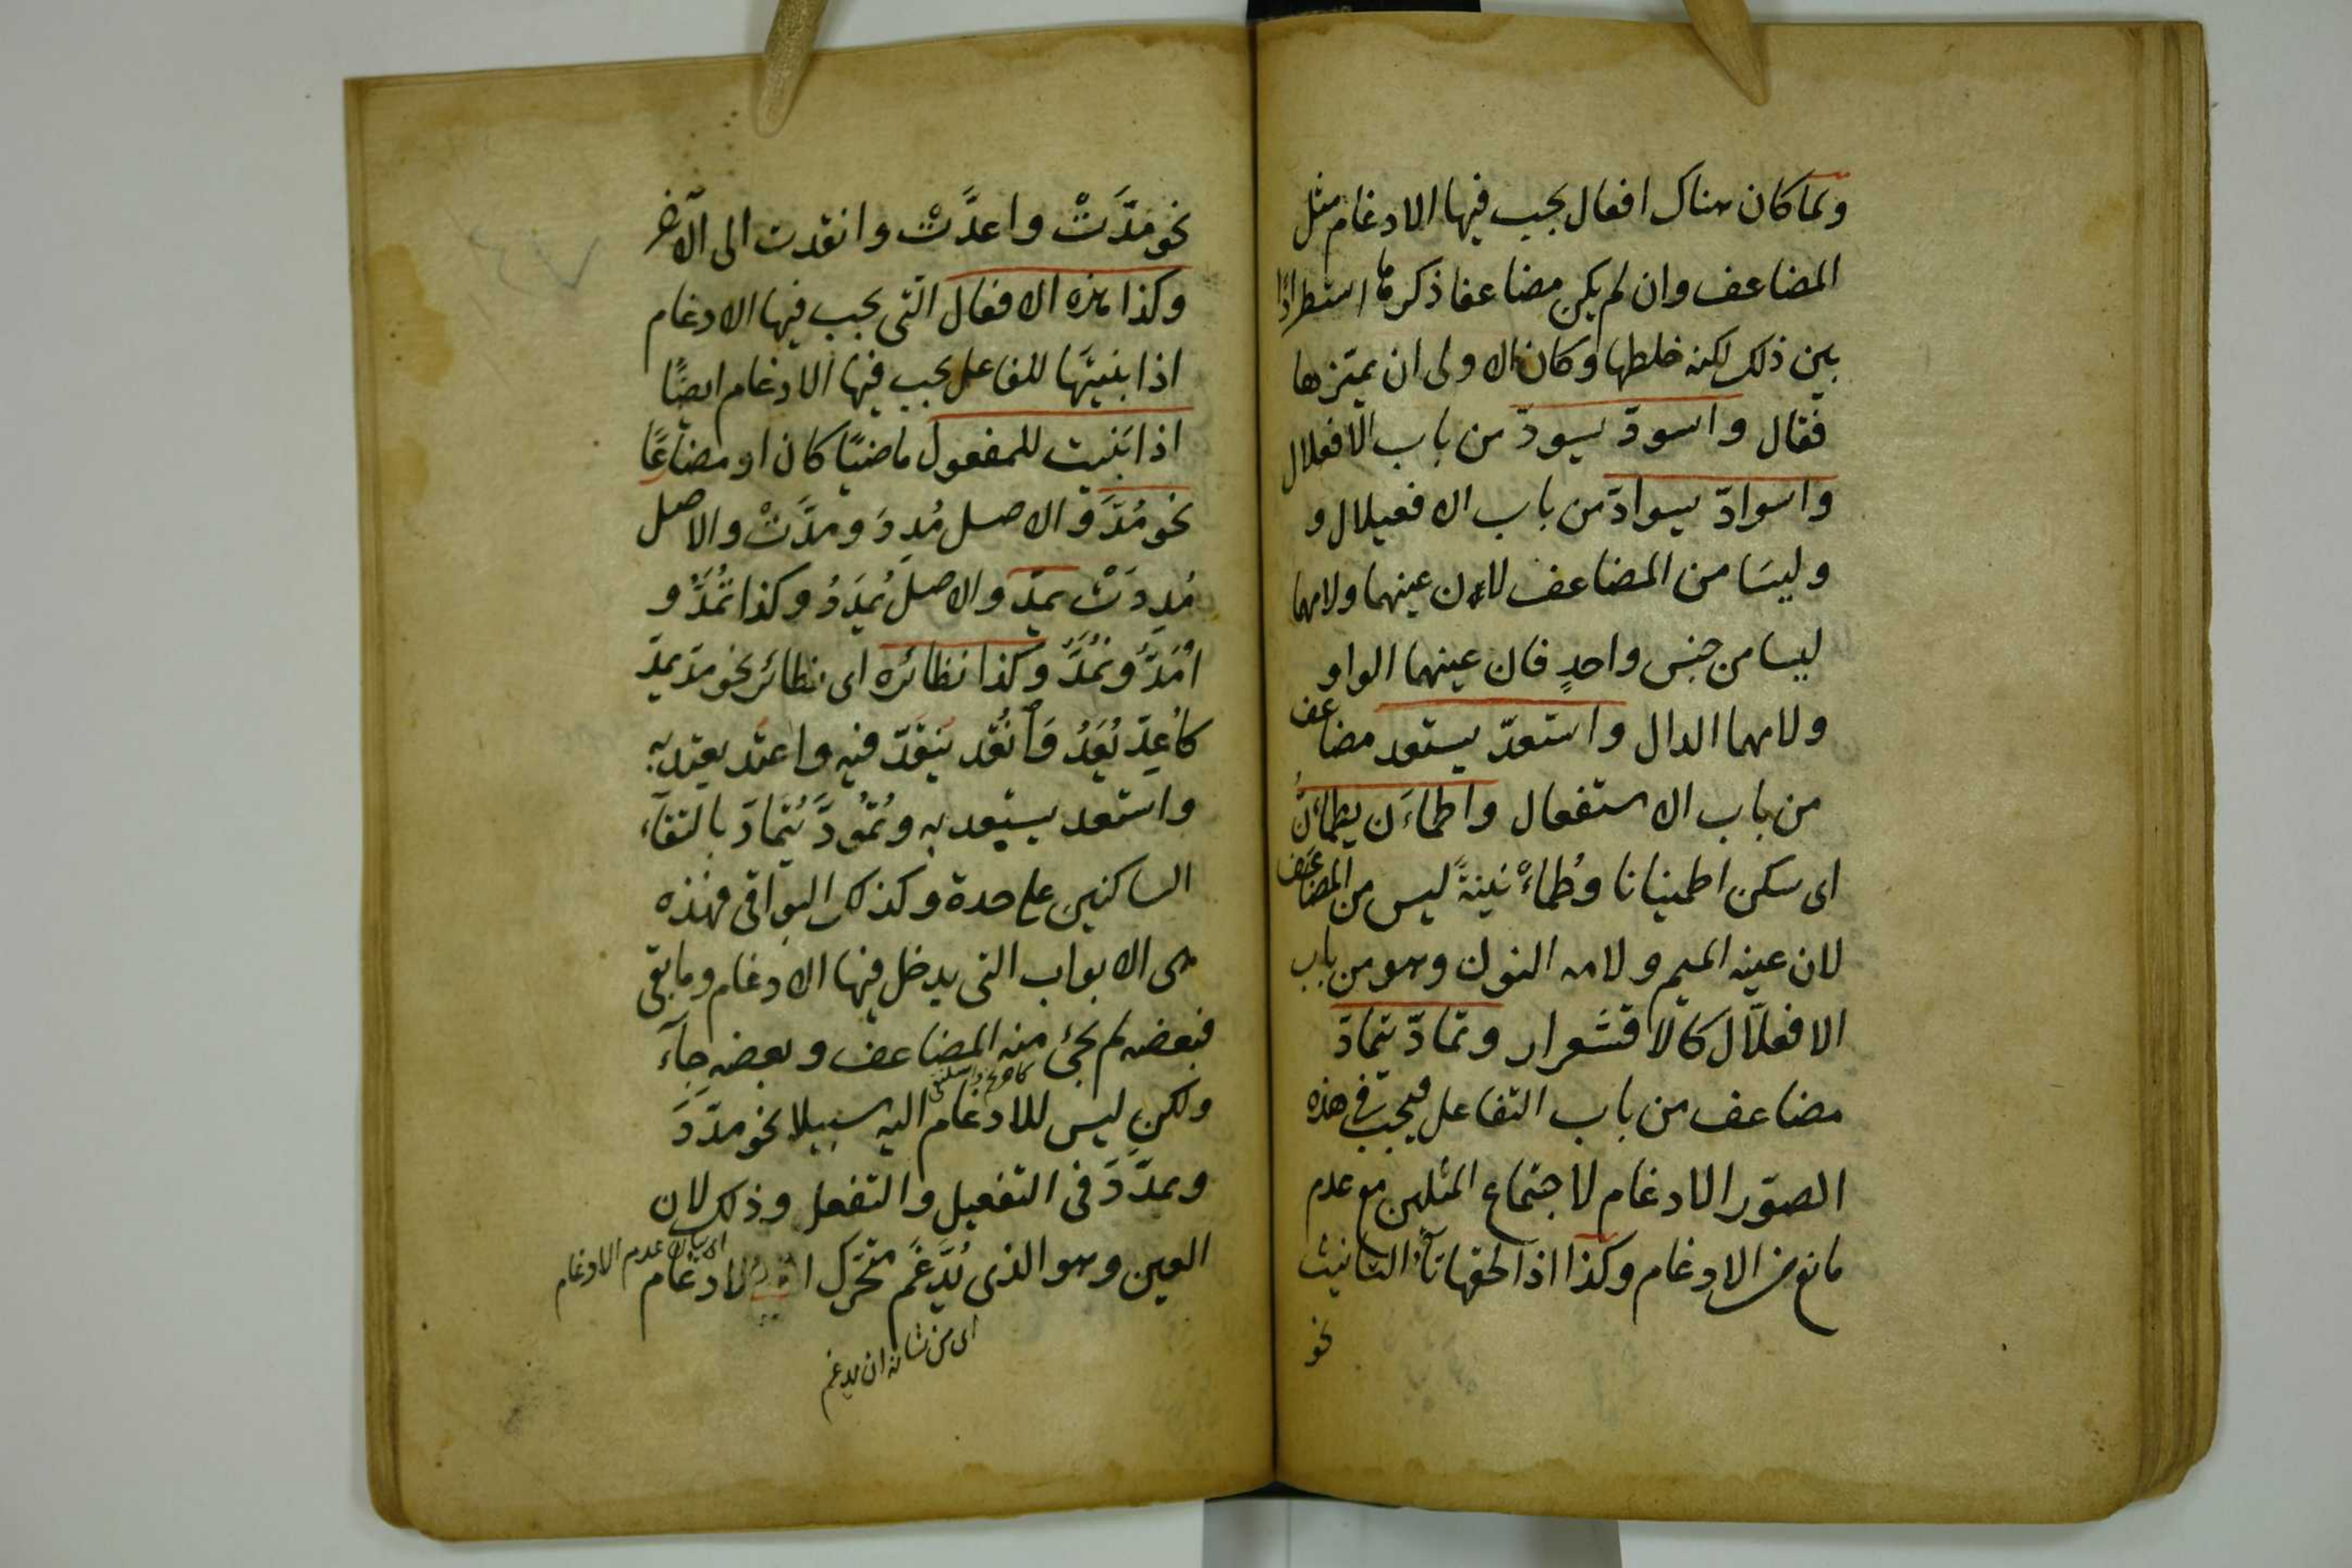 ولما كان هناك افعال يجب فيها الادغام مثل
المضاعف وان لم يكن مضاعفا ذكرها استطرادًا
بين ذلك لكنه خلطها وكان الاولى ان يميّزها
فقال واسودّ يسودّ من باب الافعلال
واسوادّ يسوادّ من باب الافعيلال و
وليسَا من المضاعف لاءن عينهما ولامهما
ليسا من جنس واحدٍ فان عينهما الواو
ولامهما الدال واستعدّ يستعد مضاعف
من باب الاستفعال واطماءَن يطمأنُ
اى سكن اطمينانا وطُماءْنينةً ليس من المضاعف
لان عينه الميم ولامه النون وهو من باب
الافعلّال كالاقشعرار وتمادّ يتمادّ
مضاعف من باب التفاعل فيجب فى هذه
الصوّر الادغام لاجتماع المثلين مع عدم
مانع من الادغام وكذا اذا لحقها تاء التانيث
نحو
نحو مَدَّتْ واعدَّتْ وانقدت الى الآخر
وكذا هذه الافعال التى يجب فيها الادغام
اذا بنيتَها للفاعل يجب فيها الادغام ايضًا
اذا بَنيت للمفعول ماضيًا كان او مضارعًا
نحو مُدَّ والاصل مُدِدَ ومدَّتْ والاصل
مُدِدَتْ يمدّ والاصل يُمدَدُ وكذا تُمَدُّ و
اُمَدُّ ونُمَدُّ وكذا نظائره اى نظائر نحو مدّ يمدّ
كاُعِدّ يُعَدُ وَاُنقُد يَنقَدّ فيه واعتد يعتد به
واستعد يستعد به وتُمُودَّ يُتمادّ بالتقاء
الساكنين على حدة وكذلك البواقى فهذه
هى الابواب التى يدخل فيها الادغام وما بقى
فبعضه لم يجئ منه المضاعف وبعضه جآء
ولكن ليس للادغام اليه سبيلا نحو مدّدَ
ويمدّدَ فى التفعيل والتفعل وذلك لان
العين وهو الذى يُدَّغَم متحرّك الادغام
اى بيان عدم الادغام
اى من شانه ان يدغم